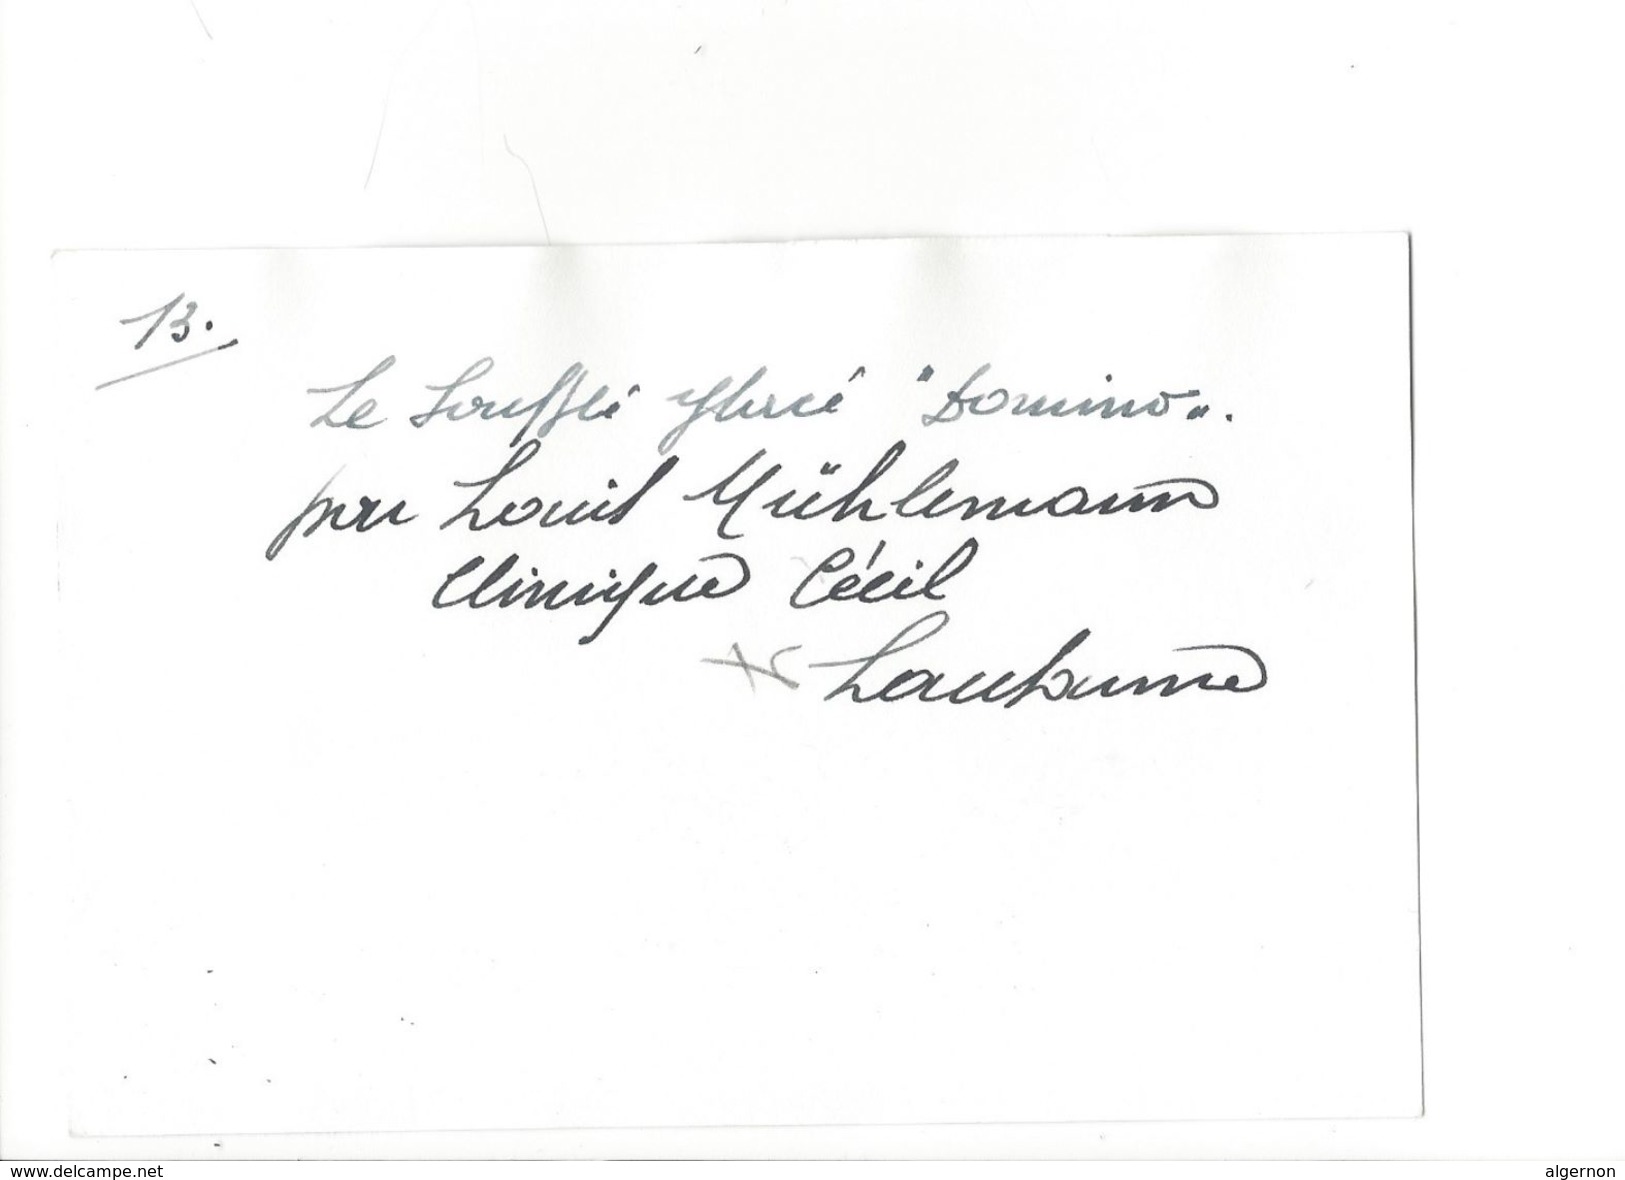 13.
Le Soufflé glacé "Domino".
par Louis Mühlemann
Clinique Cécil
Lausanne
www.delcampe.net
algernon